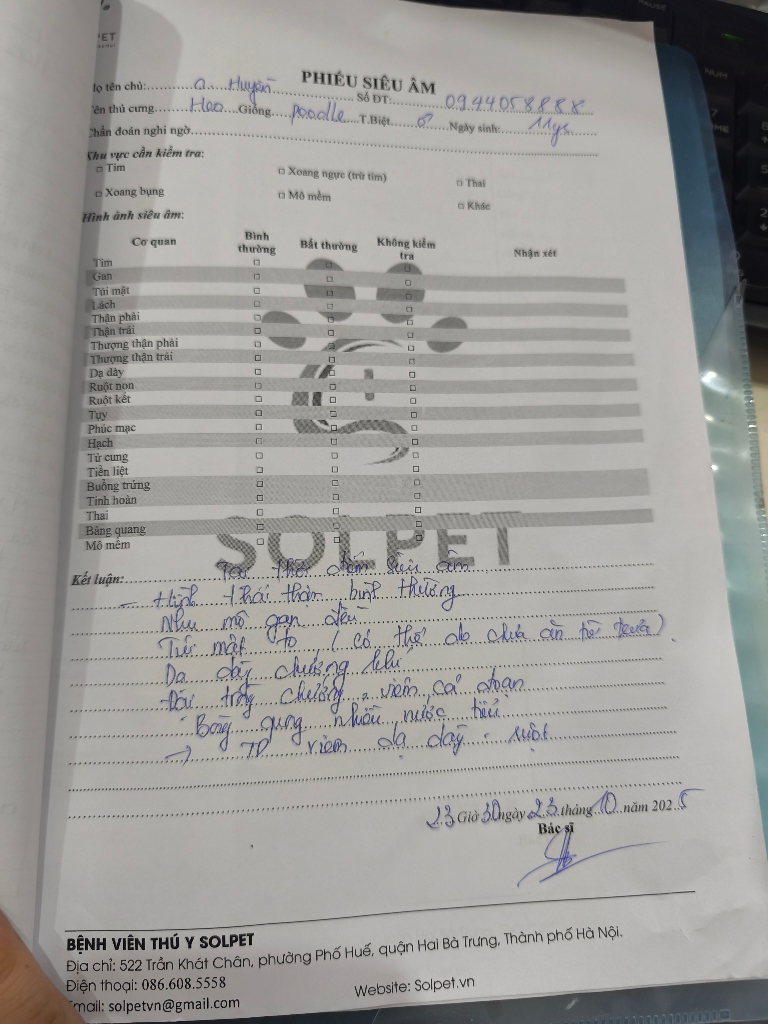 PET
PHIẾU SIÊU ÂM
Họ tên chủ: a. Huyền Số ĐT: 0944058888
Tên thú cưng Heo Giống poodle T.Biệt ♂ Ngày sinh: 11ys
Chẩn đoán nghi ngờ
Khu vực cần kiểm tra:
□ Tim □ Xoang ngực (trừ tim) □ Thai
□ Xoang bụng □ Mô mềm □ Khác
Hình ảnh siêu âm:
Cơ quan Bình thường Bất thường Không kiểm tra Nhận xét
Tim □ □ □
Gan □ □ □
Túi mật □ □ □
Lách □ □ □
Thận phải □ □ □
Thận trái □ □ □
Thượng thận phải □ □ □
Thượng thận trái □ □ □
Dạ dày □ □ □
Ruột non □ □ □
Ruột kết □ □ □
Tụy □ □ □
Phúc mạc □ □ □
Hạch □ □ □
Tử cung □ □ □
Tiền liệt □ □ □
Buồng trứng □ □ □
Tinh hoàn □ □ □
Thai □ □ □
Bàng quang □ □ □
Mô mềm □ □ □
SOLPET
Kết luận: Tại thời điểm siêu âm
- Hình thái thận bình thường
Nhu mô gan đều
Túi mật to (có thể do chưa ăn
Dạ dày chướng khí
tràng chướng, viêm cả đoạn
Bàng quang nhiều nước tiểu
→ TD viêm dạ dày - ruột
23 Giờ 30 ngày 23 tháng 10 năm 2025
Bác sĩ
BỆNH VIỆN THÚ Y SOLPET
Địa chỉ: 522 Trần Khát Chân, phường Phố Huế, quận Hai Bà Trưng, Thành phố Hà Nội.
Điện thoại: 086.608.5558 Website: Solpet.vn
Email: solpetvn@gmail.com